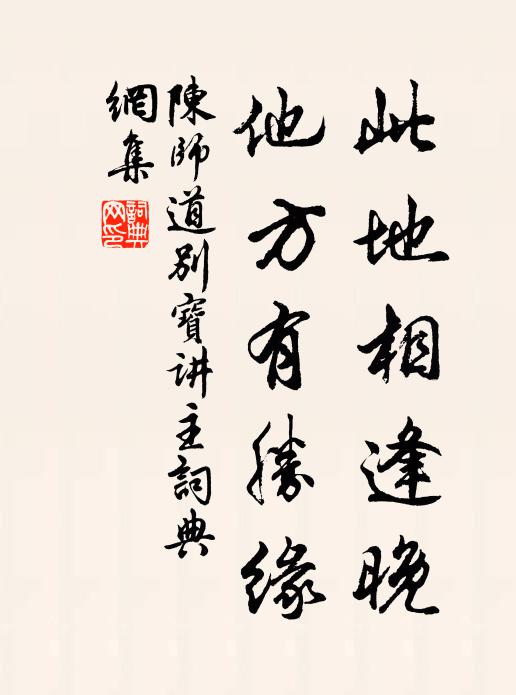 此地相逢晚
他方有勝緣
陳師道別寶讲主詞典
網集
詞典
网印